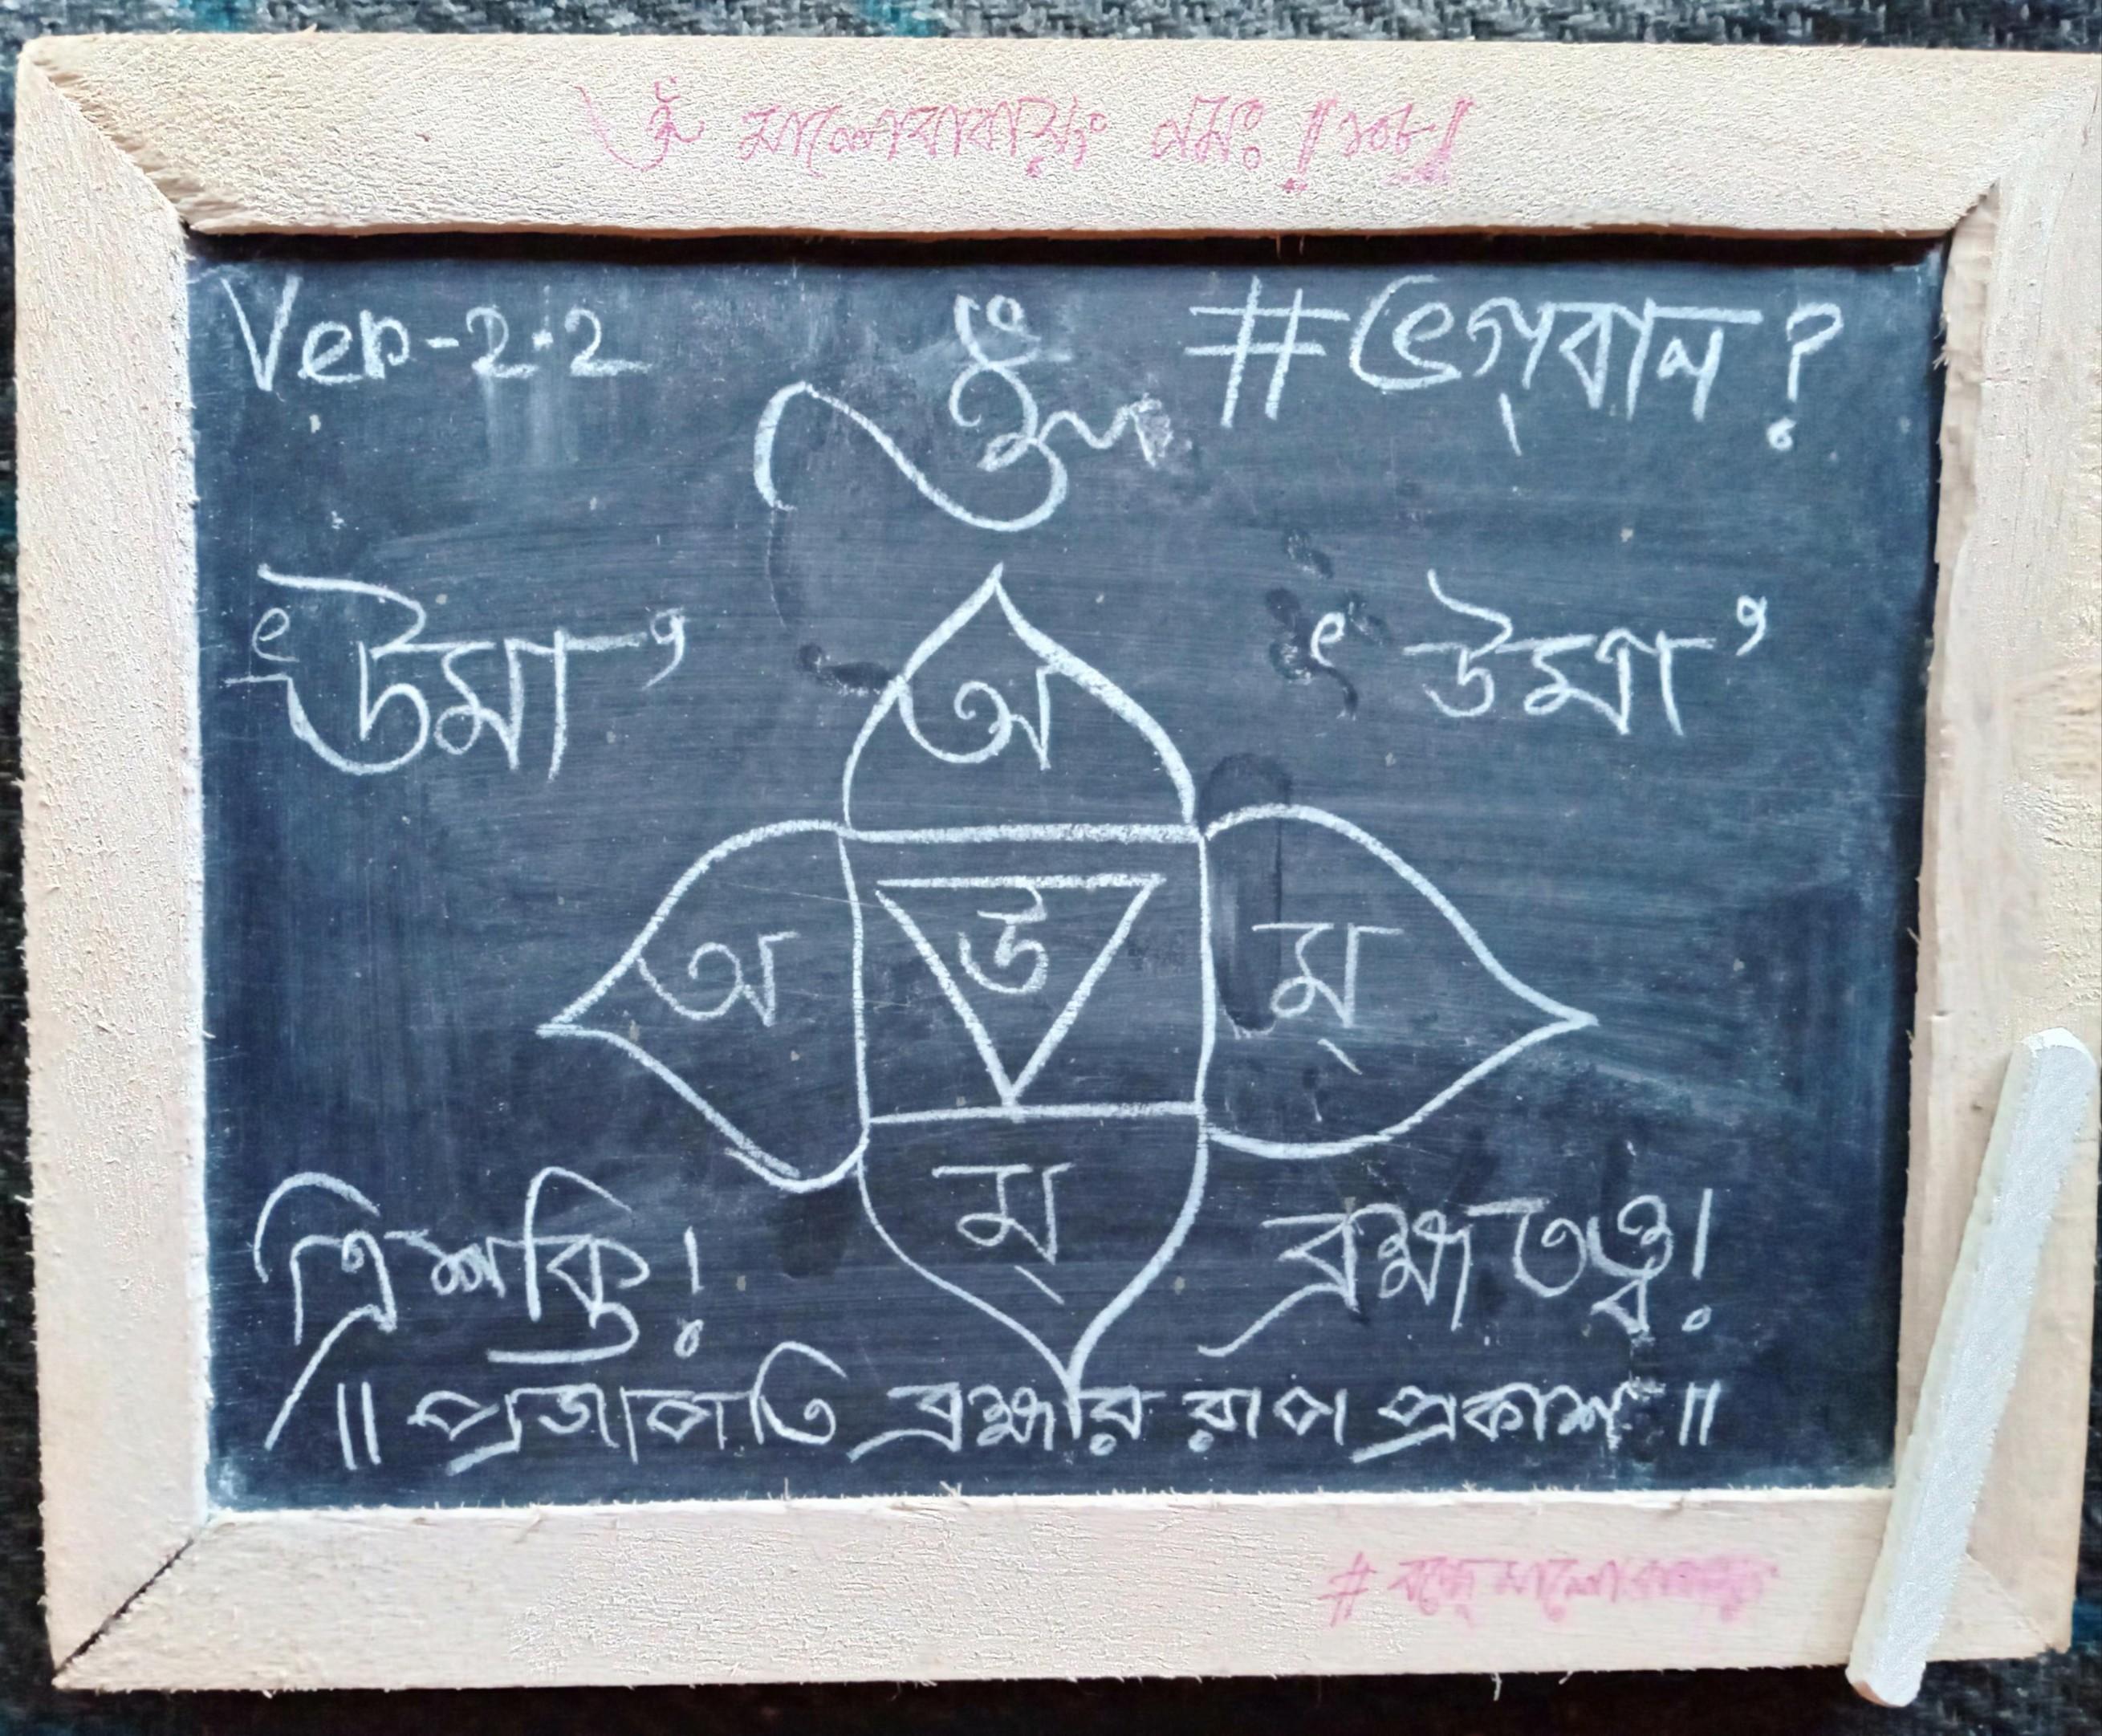 নমঃ ॥ ১০৮ ॥
Ver-2.2
ওঁ
#ভগ্‌বান ?
‘উমা’
‘উমা’
অ
অ
উ
ম্
ম্
ত্রিশক্তি!
ব্রহ্ম তত্ত্ব!
॥ প্রজাপতি ব্রহ্মার রাপ প্রকাশ ॥